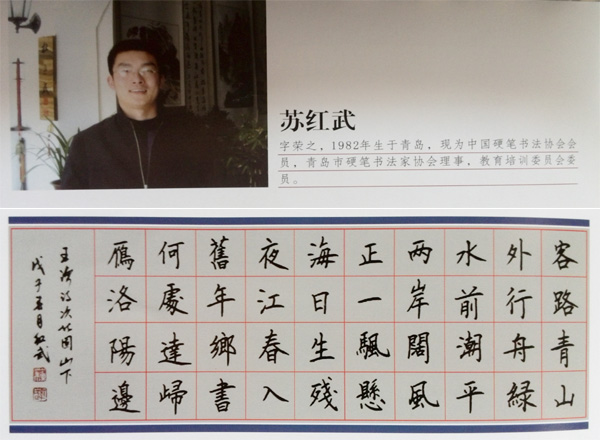 苏红武
字荣之，1982年生于青岛，现为中国硬笔书法协会会
员，青岛市硬笔书法家协会理事，教育培训委员会委
员。
客路青山
外行舟緑
水前潮平
两岸闊風
正一颿懸
海日生残
夜江春入
舊年鄉書
何處達歸
鴈洛陽邊
王湾诗次北固山下
戊子月红武